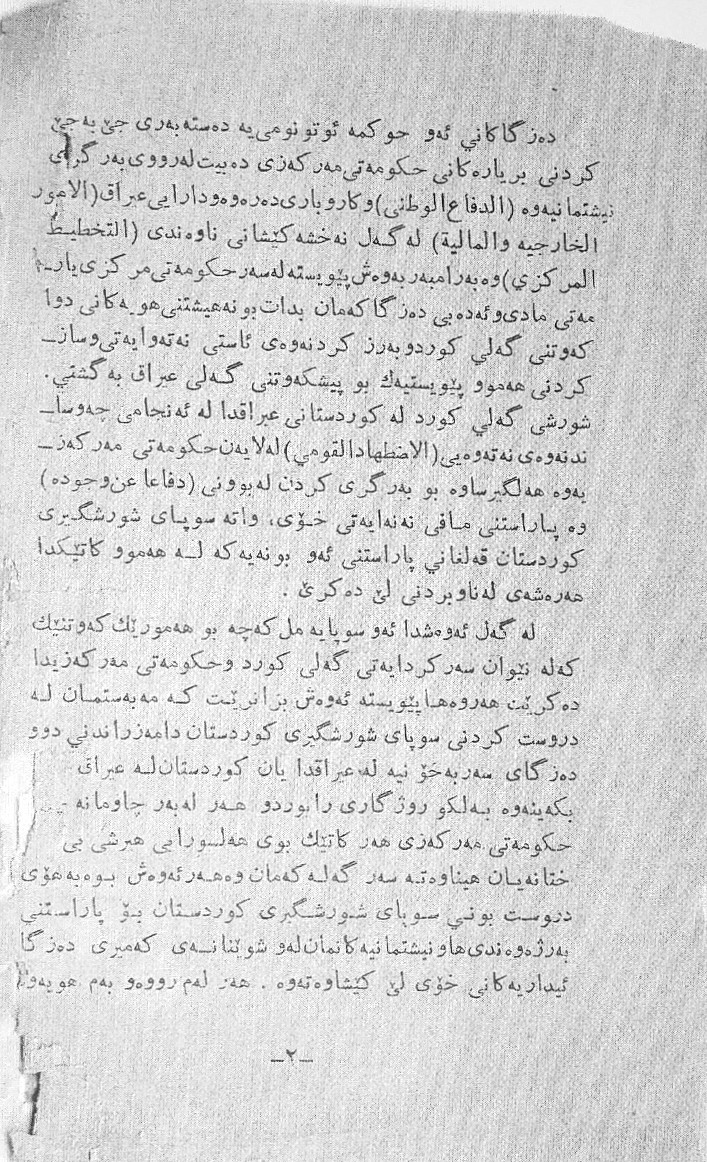 دەزگاکاني ئەو حوکمە ئوتونومی‌یە دەستەبەری جێ بەجێ
کردنی بریارەکانی حکومەتی‌مەرکەزی دەبیت‌لەرووی‌بەرگری
نیشتمانیەوە (الدفاع‌الوطنی) وکاروباری‌دەرەوەودارایی‌عیراق (الامور
الخارجیه والمالیة) لەگەل نەخشەکێشانی ناوەندی (التخطیط
المرکزي) وە بەرامبەر بەوەش پێویستە لەسەر حکومەتی مرکزی یار‌ـ
مەتی مادی‌و ئەدەبی دەزگاکەمان بدات بو نەهیشتنی هویەکانی دوا
کەوتنی گەلي کوردوبەرز کردنەوەی ئاستی نەتەوایەتی‌وسازـ
کردنی هەموو پێویستیەك بو پیشکەوتنی گەلی عیراق بەگشتي.
شورشی گەلي کورد لە کوردستانی عیراقدا لە ئەنجامی چەوساـ
ندنەوەی نەتەوەیی (الاضطهادالقومي) لەلایەن حکومەتی مەرکەزـ
یەوە هەلگیرساوە بو بەرگری کردن لەبوونی (دفاعا عن وجوده)
وە پاراستنی مافی نەنەایەتی خۆی، واتە سوپای شورشگیری
کوردستان قەلغاني پاراستنی ئەو بونەیەکە لە هەموو کاتێکدا
هەرەشەی لەناوبردنی لێ دەکرێ .
لە گەل ئەوەشدا ئەو سوپایە مل کەچە بو هەمورێك کەوتنێك
کەلە نێوان سەرکردایەتی گەلی کورد وحکومەتی مەرکەزیدا
دەکرێت هەروەها پێویستە ئەوەش بزانرێت کە مەبەستمان لە
دروست کردنی سوپای شورشگیری کوردستان دامەزراندني دوو
دەزگای سەربەخۆ نیە لە عیراقدا یان کوردستان لە عیراق
بکەینەوە بەلکو روژگاری رابوردو هەر لەبەر چاومانە
حکومەتی مەرکەزی هەر کاتێك بوی هەلسورابی هیرشی بی
ختانەیان هیناوەتە سەر گەلەکەمان وەهەرئەوەش بوە بەهۆی
دروست بونی سوپای شورشگیری کوردستان بۆ پاراستنی
بەرژەوەندی هاونیشتمانیەکانمان لەو شوێنانەی کەمیری دەزگا
ئیداریەکانی خۆی لێ کێشاوەتەوە . هەر لەم رووەو بەم هویەوە
ـ٢ـ